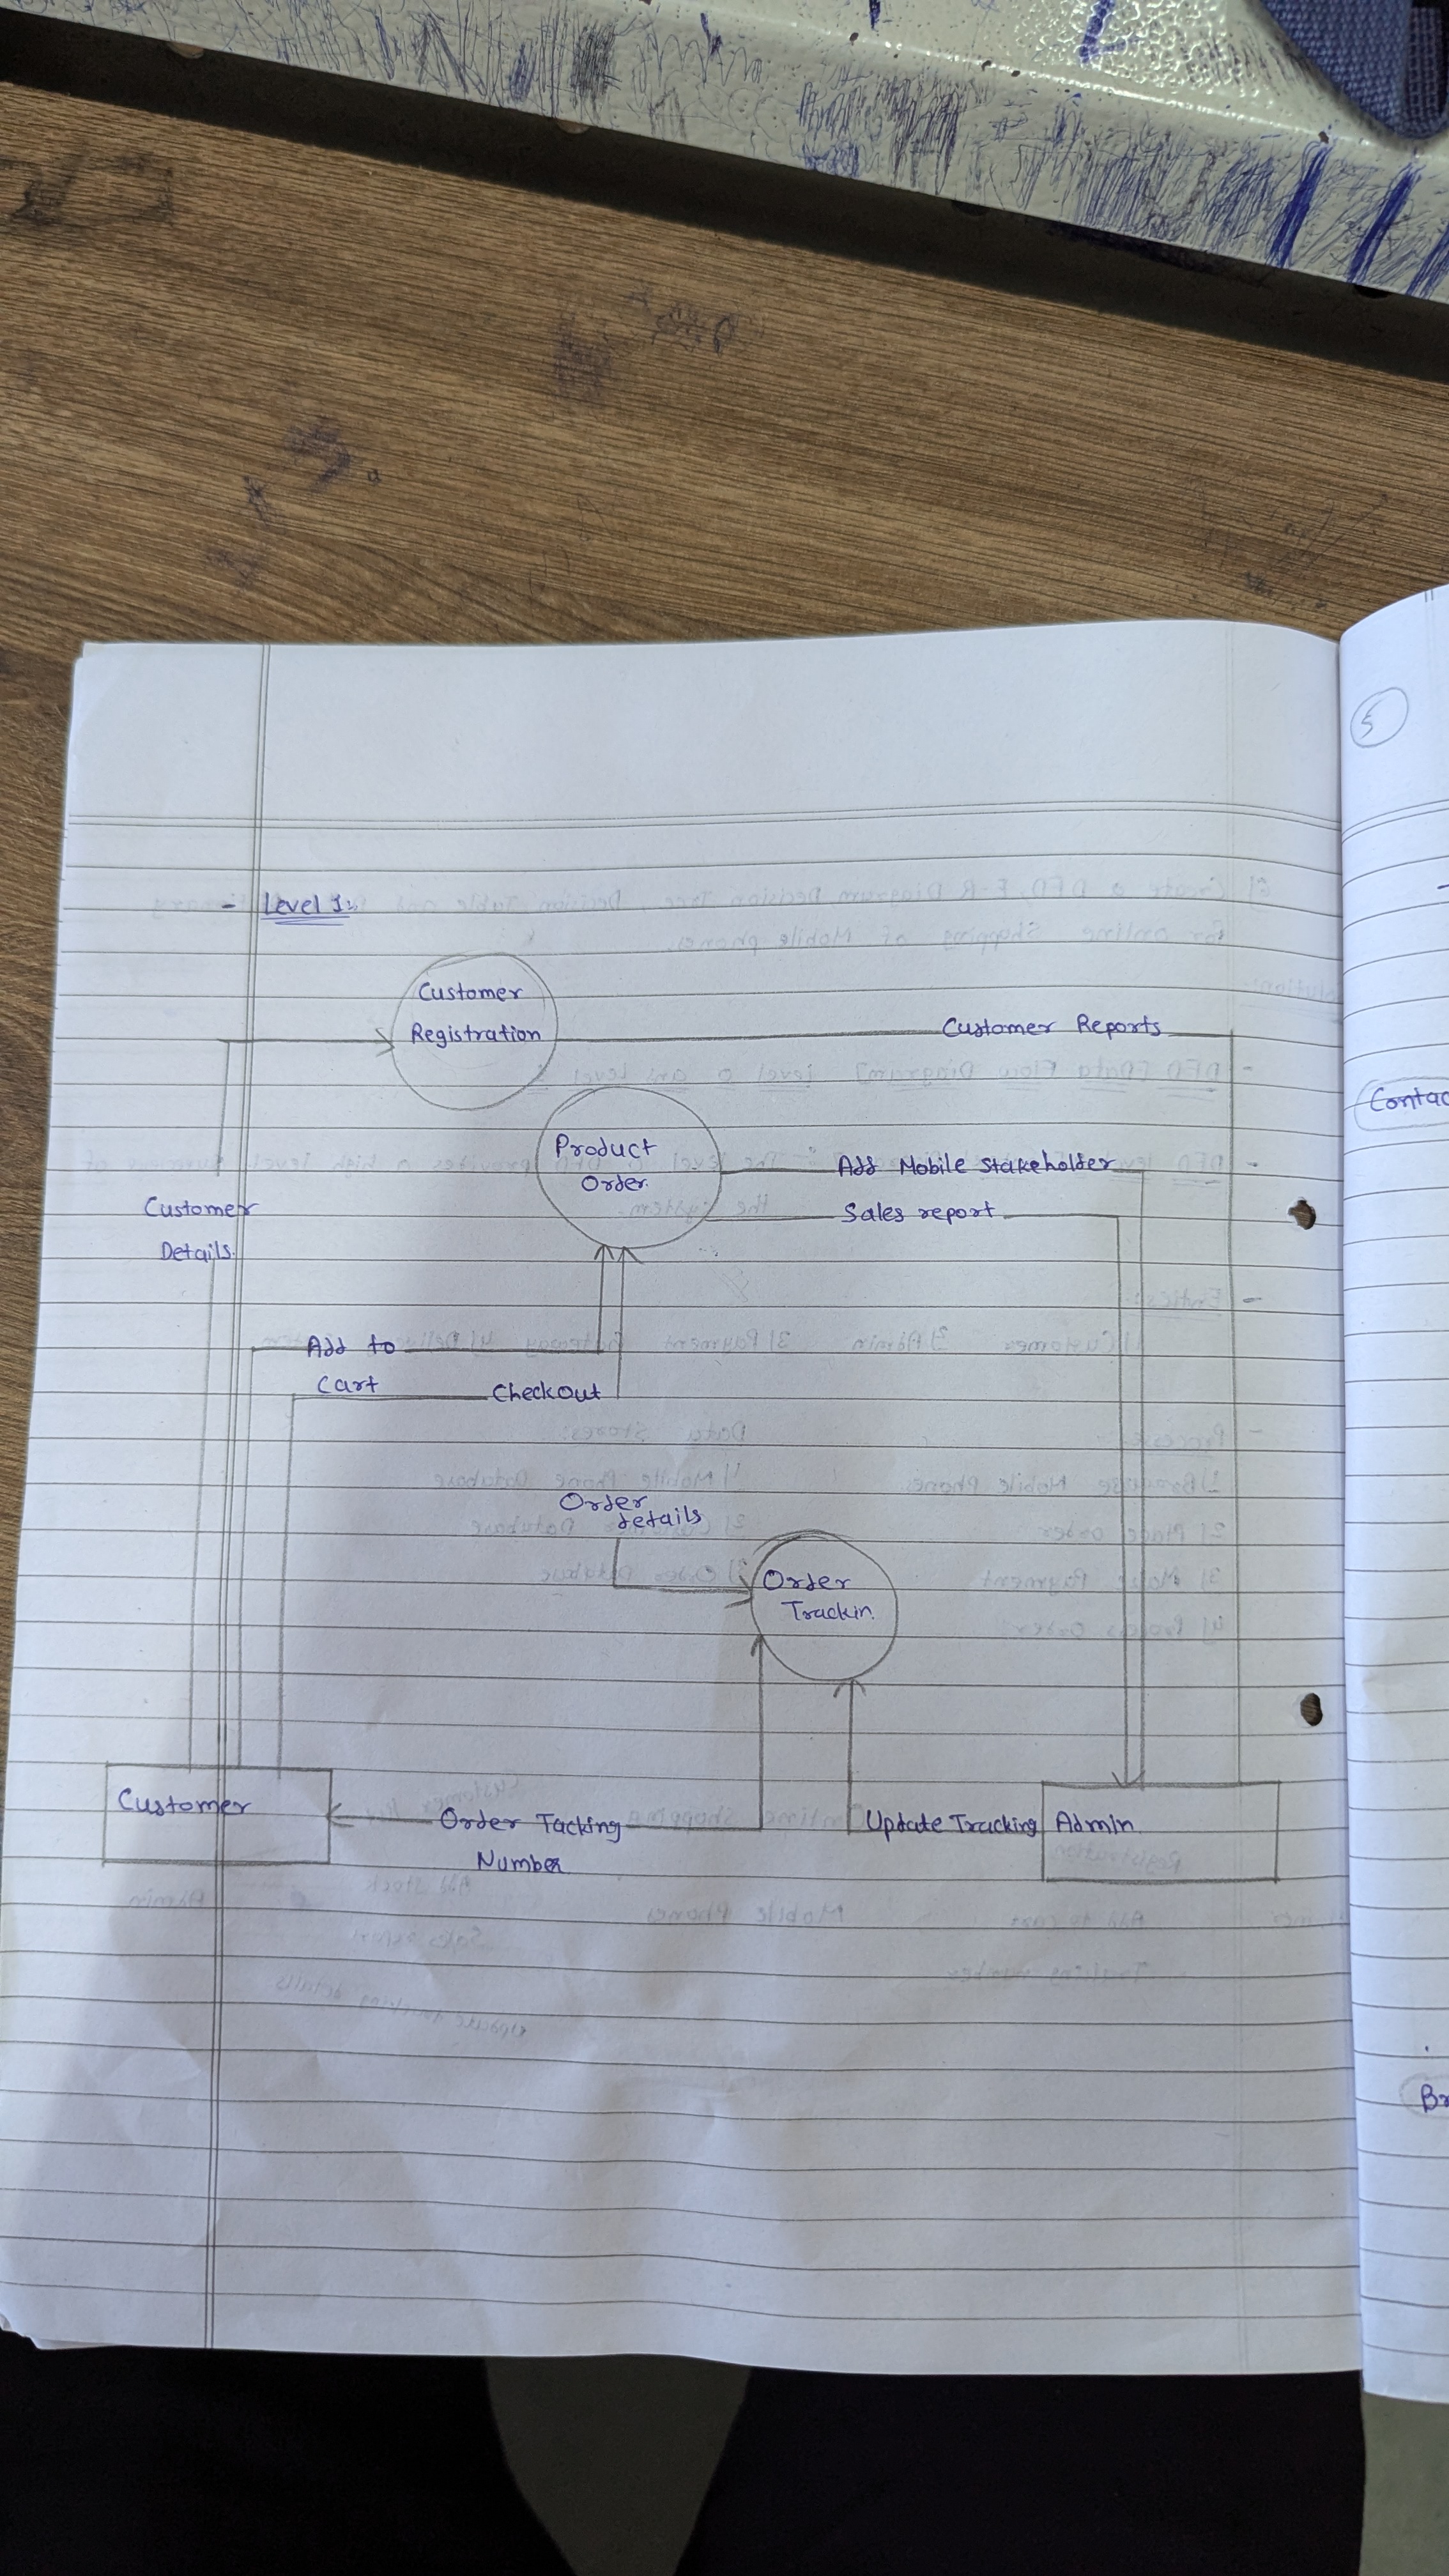 5
- Level 1:
Customer
Registration
Customer Reports
Product
Order.
Add Mobile Stakeholder
Sales report
Customer
Details.
Add to
Cart
Checkout
Order
details
Order
Trackin.
Customer
Order Tacking
Number
Update Tracking
Admin
Contac
Br